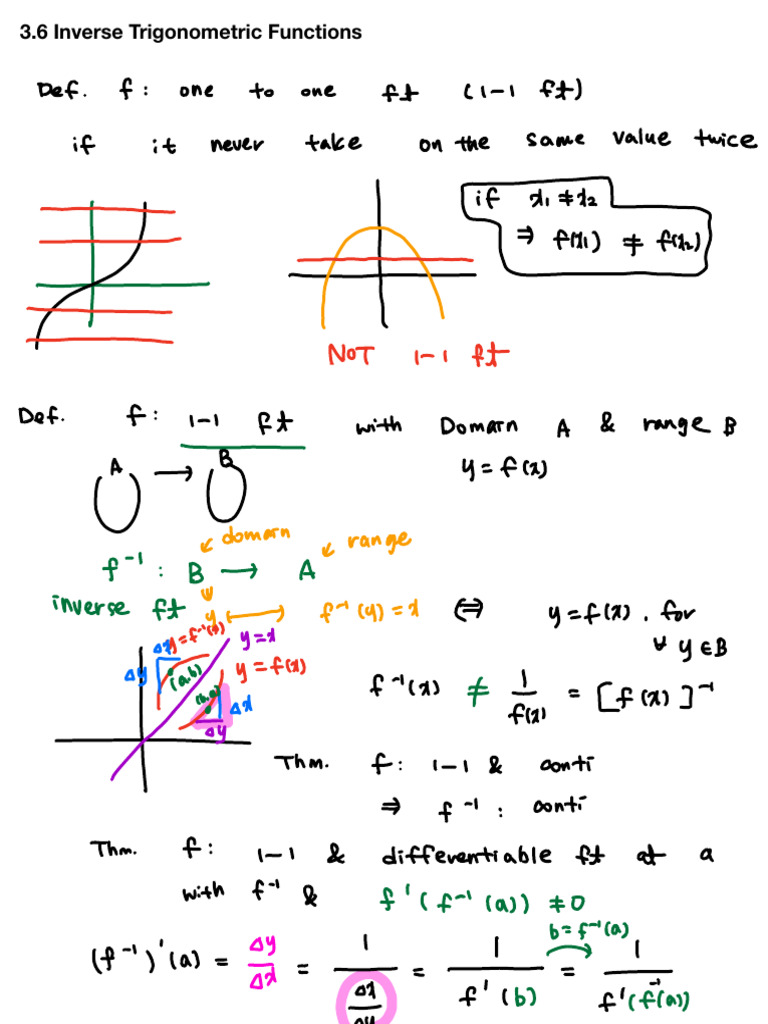 3.6 Inverse Trigonometric Functions
Def. f: one to one ft (1-1 ft)
if it never take on the same value twice
if x₁ ≠ x₂
⇒ f(x₁) ≠ f(x₂)
NOT 1-1 ft
Def. f: 1-1 ft with Domain A & range B
A → B
y = f(x)
domain
range
f⁻¹ : B → A
inverse ft
y ↔ f⁻¹(y) = x ⇔ y = f(x), for
∀ y ∈ B
Δx
y = f⁻¹(x)
y = x
Δy
(a,b)
y = f(x)
(b,a)
Δx
Δy
f⁻¹(x) ≠ 1/f(x) = [f(x)]⁻¹
Thm. f: 1-1 & conti
⇒ f⁻¹ : conti
Thm. f: 1-1 & differentiable ft at a
with f⁻¹ & f'(f⁻¹(a)) ≠ 0
b = f⁻¹(a)
(f⁻¹)'(a) = Δy/Δx = 1/(Δx/Δy) = 1/f'(b) = 1/f'(f⁻¹(a))